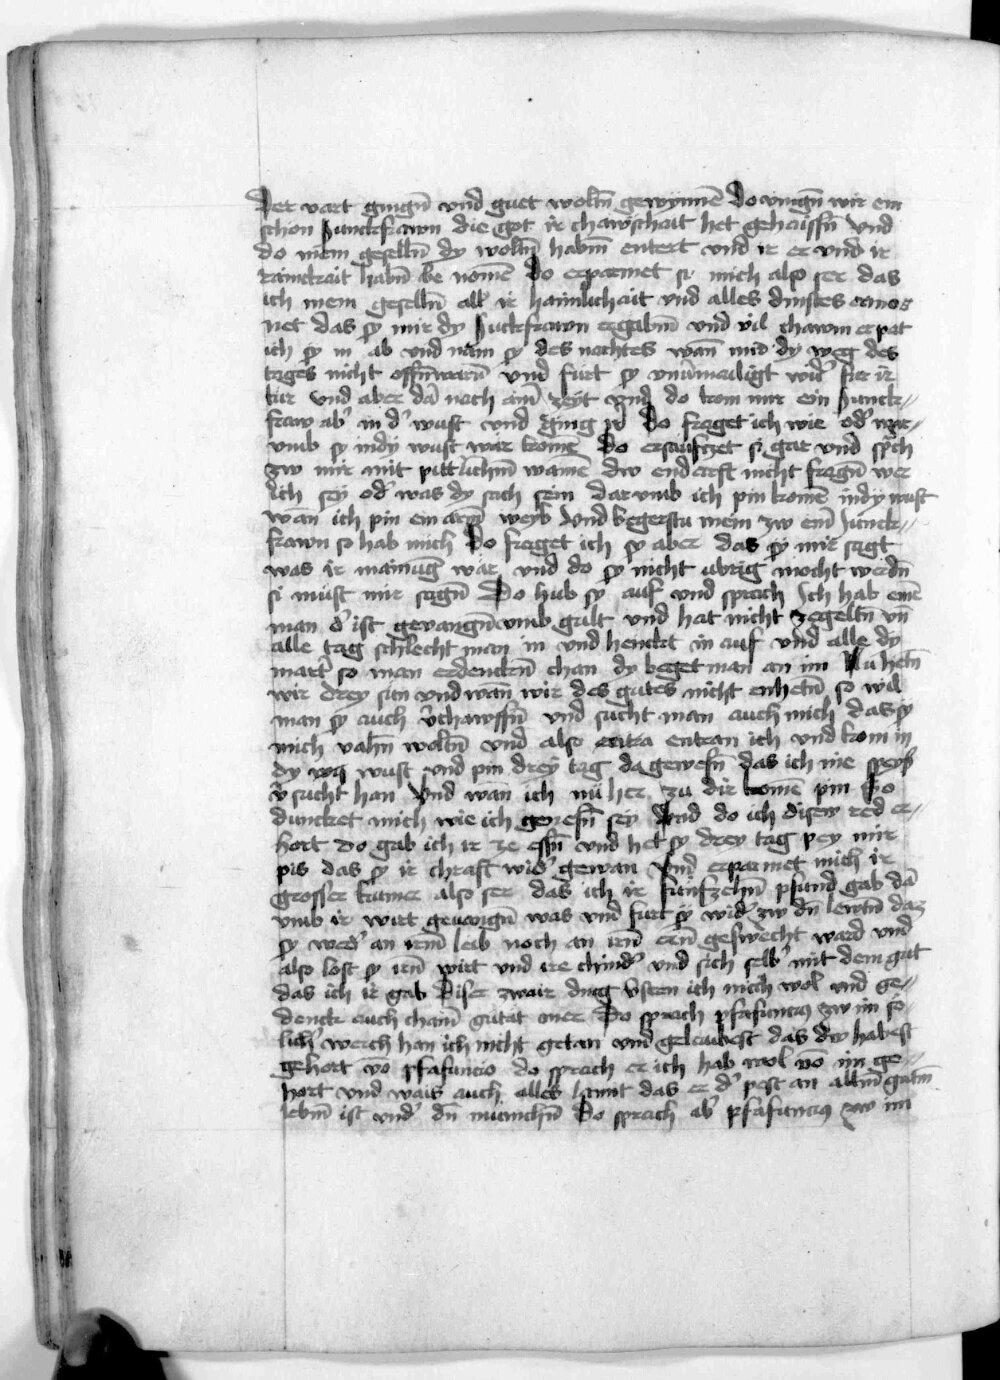 der vart gingn̄ vnd guet woltn̄ gewinnē Do vingn̄ wir ein
schon Junckfrawn die got ir chawschait het gehaissn̄ vnd
do mein geselln̄ dy woltn̄ habm̄ entert vnd ir er vnd ir
rainckait habn̄ be nomē Do erparmet si mich also ser das
ich mein geselln̄ all ir haimlichait vnd alles dinstes ermo
net das sy mir dy Juckfrawn ergabm̄ vnd vil chawm erpat
ich sy in ab vnd nam sy des nachtes wan̄ mid dy weg des
tages nicht offn̄ warn̄ vnd furt sy vnūmailigt wid' fur ir
tur vnd aber dā nach aim̄ zeyt vnd do kom mir ein Junck-
fraw ab' in d' wust vnd ging Do fraget ich wie od' war-
vmb sy indy wust wār komē Do ersewfczet si gar vnd sp̄ch
zw mir mit pittlichm̄ wainē dw endarft nicht fragn̄ wer
ich sey od' was dy sach sein dar vmb ich pin komē indy wust
wan̄ ich pin ein arm̄ weyb vnd begerstu mein zw eim̄ Junck-
frawn so hab mich Do fraget ich sy aber das sy mir sagt
was ir mainūg wār vnd do sy nicht ubrig mocht werdn̄
si must mir sagn̄ Do hub sy auf vnd sprach Ich hab einē
man d' ist gevangn̄ vmb gult vnd hat nicht zegeltn̄ vn̄
alle tag schlecht man in vnd henckt in auf vnd alle dy
mart' so man erdenckn̄ chan dy beget man an im Nu hetn̄
wir drey sun vnd wan̄ wir des gutes nicht enhetn̄ so wil
man sy auch v'chawffn̄ vnd sucht man auch mich das sy
mich vahn̄ woltn̄ vnd also entran ich vnd kom in
dy wust vnd pin drey tag da gewesn̄ das ich nie speyß
v'sucht han Vnd wan̄ ich nu her zu dir komē pin So
duncket mich wie ich genesn̄ sey Vnd do ich disew red er-
hort do gab ich ir ze essn̄ vnd het sy drey tag pey mir
pis das sy ir chraft wid' gewan Vnd erparmet mich ir
grosser kumer also ser das ich ir funfzehn̄ pfund gab dā
vmb ir wirt gevangn̄ was vnd furt sy wid' zw dn̄ lewtn̄ daz
sy wed' an irm̄ leib noch an irn̄ ern̄ geswecht ward vnd
also lost sy irn̄ wirt vnd ire chind' vnd sich selb' mit dem gut
das ich ir gab Diser zwair ding v'steen ich mich wol vnd ge-
denck auch chain̄ gutat mer Do sprach pfafuncius zw im so-
lich' werch han ich nicht getan vnd gelaubest das dw habest
gehort vō pfafuncio do sprach er ich hab wol vō im ge-
hort vnd wais auch alles samt das er d' pest an allm̄ gutm̄
lebm̄ ist vnd' dn̄ munichn̄ Do sprach ab' pfafuncius zw im